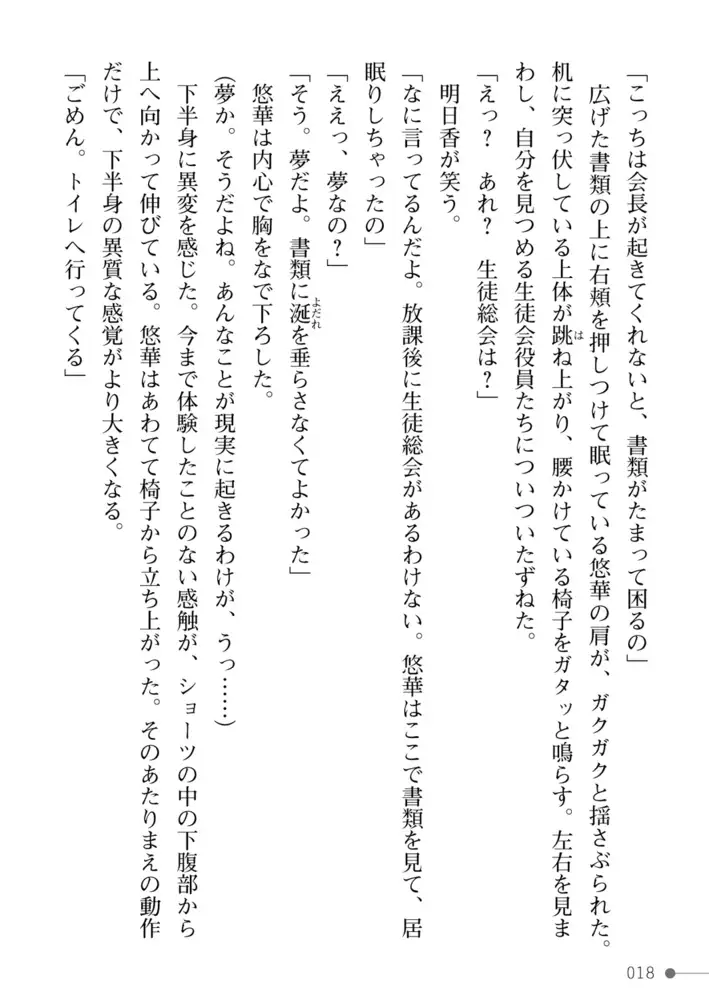 「こっちは会長が起きてくれないと、書類がたまって困るの」
　広げた書類の上に右頬を押しつけて眠っている悠華の肩が、ガクガクと揺さぶられた。
机に突っ伏している上体が跳ね上がり、腰かけている椅子をガタッと鳴らす。左右を見ま
わし、自分を見つめる生徒会役員たちについついたずねた。
「えっ？　あれ？　生徒総会は？」
　明日香が笑う。
「なに言ってるんだよ。放課後に生徒総会があるわけない。悠華はここで書類を見て、居
眠りしちゃったの」
「ええっ、夢なの？」
「そう。夢だよ。書類に涎を垂らさなくてよかった」
　悠華は内心で胸をなで下ろした。
（夢か。そうだよね。あんなことが現実に起きるわけが、うっ……）
　下半身に異変を感じた。今まで体験したことのない感触が、ショーツの中の下腹部から
上へ向かって伸びている。悠華はあわてて椅子から立ち上がった。そのあたりまえの動作
だけで、下半身の異質な感覚がより大きくなる。
「ごめん。トイレへ行ってくる」
は
よだれ
018